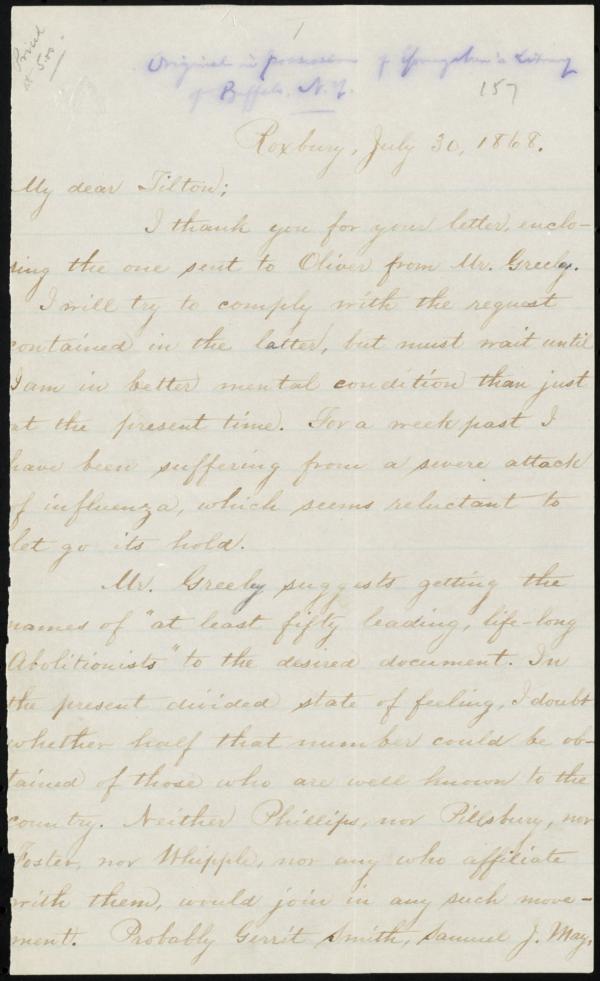 1
Priced
at 5.00.
Original in possession of Youngmen's Library
of Buffalo, N.Y.
157
Roxbury, July 30, 1868.
My dear Tilton:
I thank you for your letter, enclo-
sing the one sent to Oliver from Mr. Greely.
I will try to comply with the request
contained in the latter, but must wait until
I am in better mental condition than just
at the present time. For a week past I
have been suffering from a severe attack
of influenza, which seems reluctant to
let go its hold.
Mr. Greeley suggests getting the
names of "at least fifty leading, life-long
Abolitionists" to the desired document. In
the present divided state of feeling, I doubt
whether half that number could be ob-
tained of those who are well known to the
country. Neither Phillips, nor Pillsbury, nor
Foster, nor Whipple, nor any who affiliate
with them, would join in any such move-
ment. Probably Gerrit Smith, Samuel J. May,